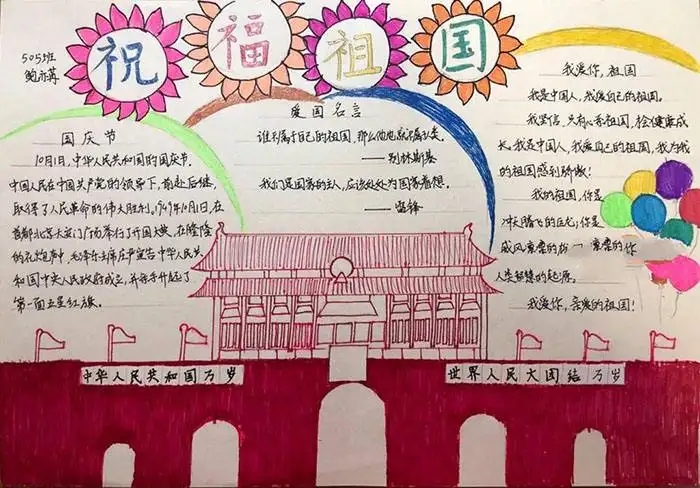 505班
鲍亦苒
祝福祖国
国庆节
10月1日,中华人民共和国的国庆节。
中国人民在中国共产党的领导下,前赴后继,
取得了人民革命的伟大胜利。1949年10月1日,在
首都北京天安门广场举行了开国大典,在隆隆
的礼炮声中,毛泽东主席庄严宣告中华人民共
和国中央人民政府成立,并亲手升起了
第一面五星红旗。
爱国名言
谁不属于自己的祖国,那么他也就不属于人类。
——别林斯基
我们是国家的主人,应该处处为国家着想。
——雷锋
我爱你,祖国
我是中国人,我爱自己的祖国。
我坚信,只有心系祖国,才会健康成
长。我是中国人,我爱自己的祖国,我为我
的祖国感到骄傲!
我的祖国,你是
冲天腾飞的巨龙;你是
威风凛凛的
你
人类智慧的起源。
我爱你,亲爱的祖国!
中华人民共和国万岁
世界人民大团结万岁